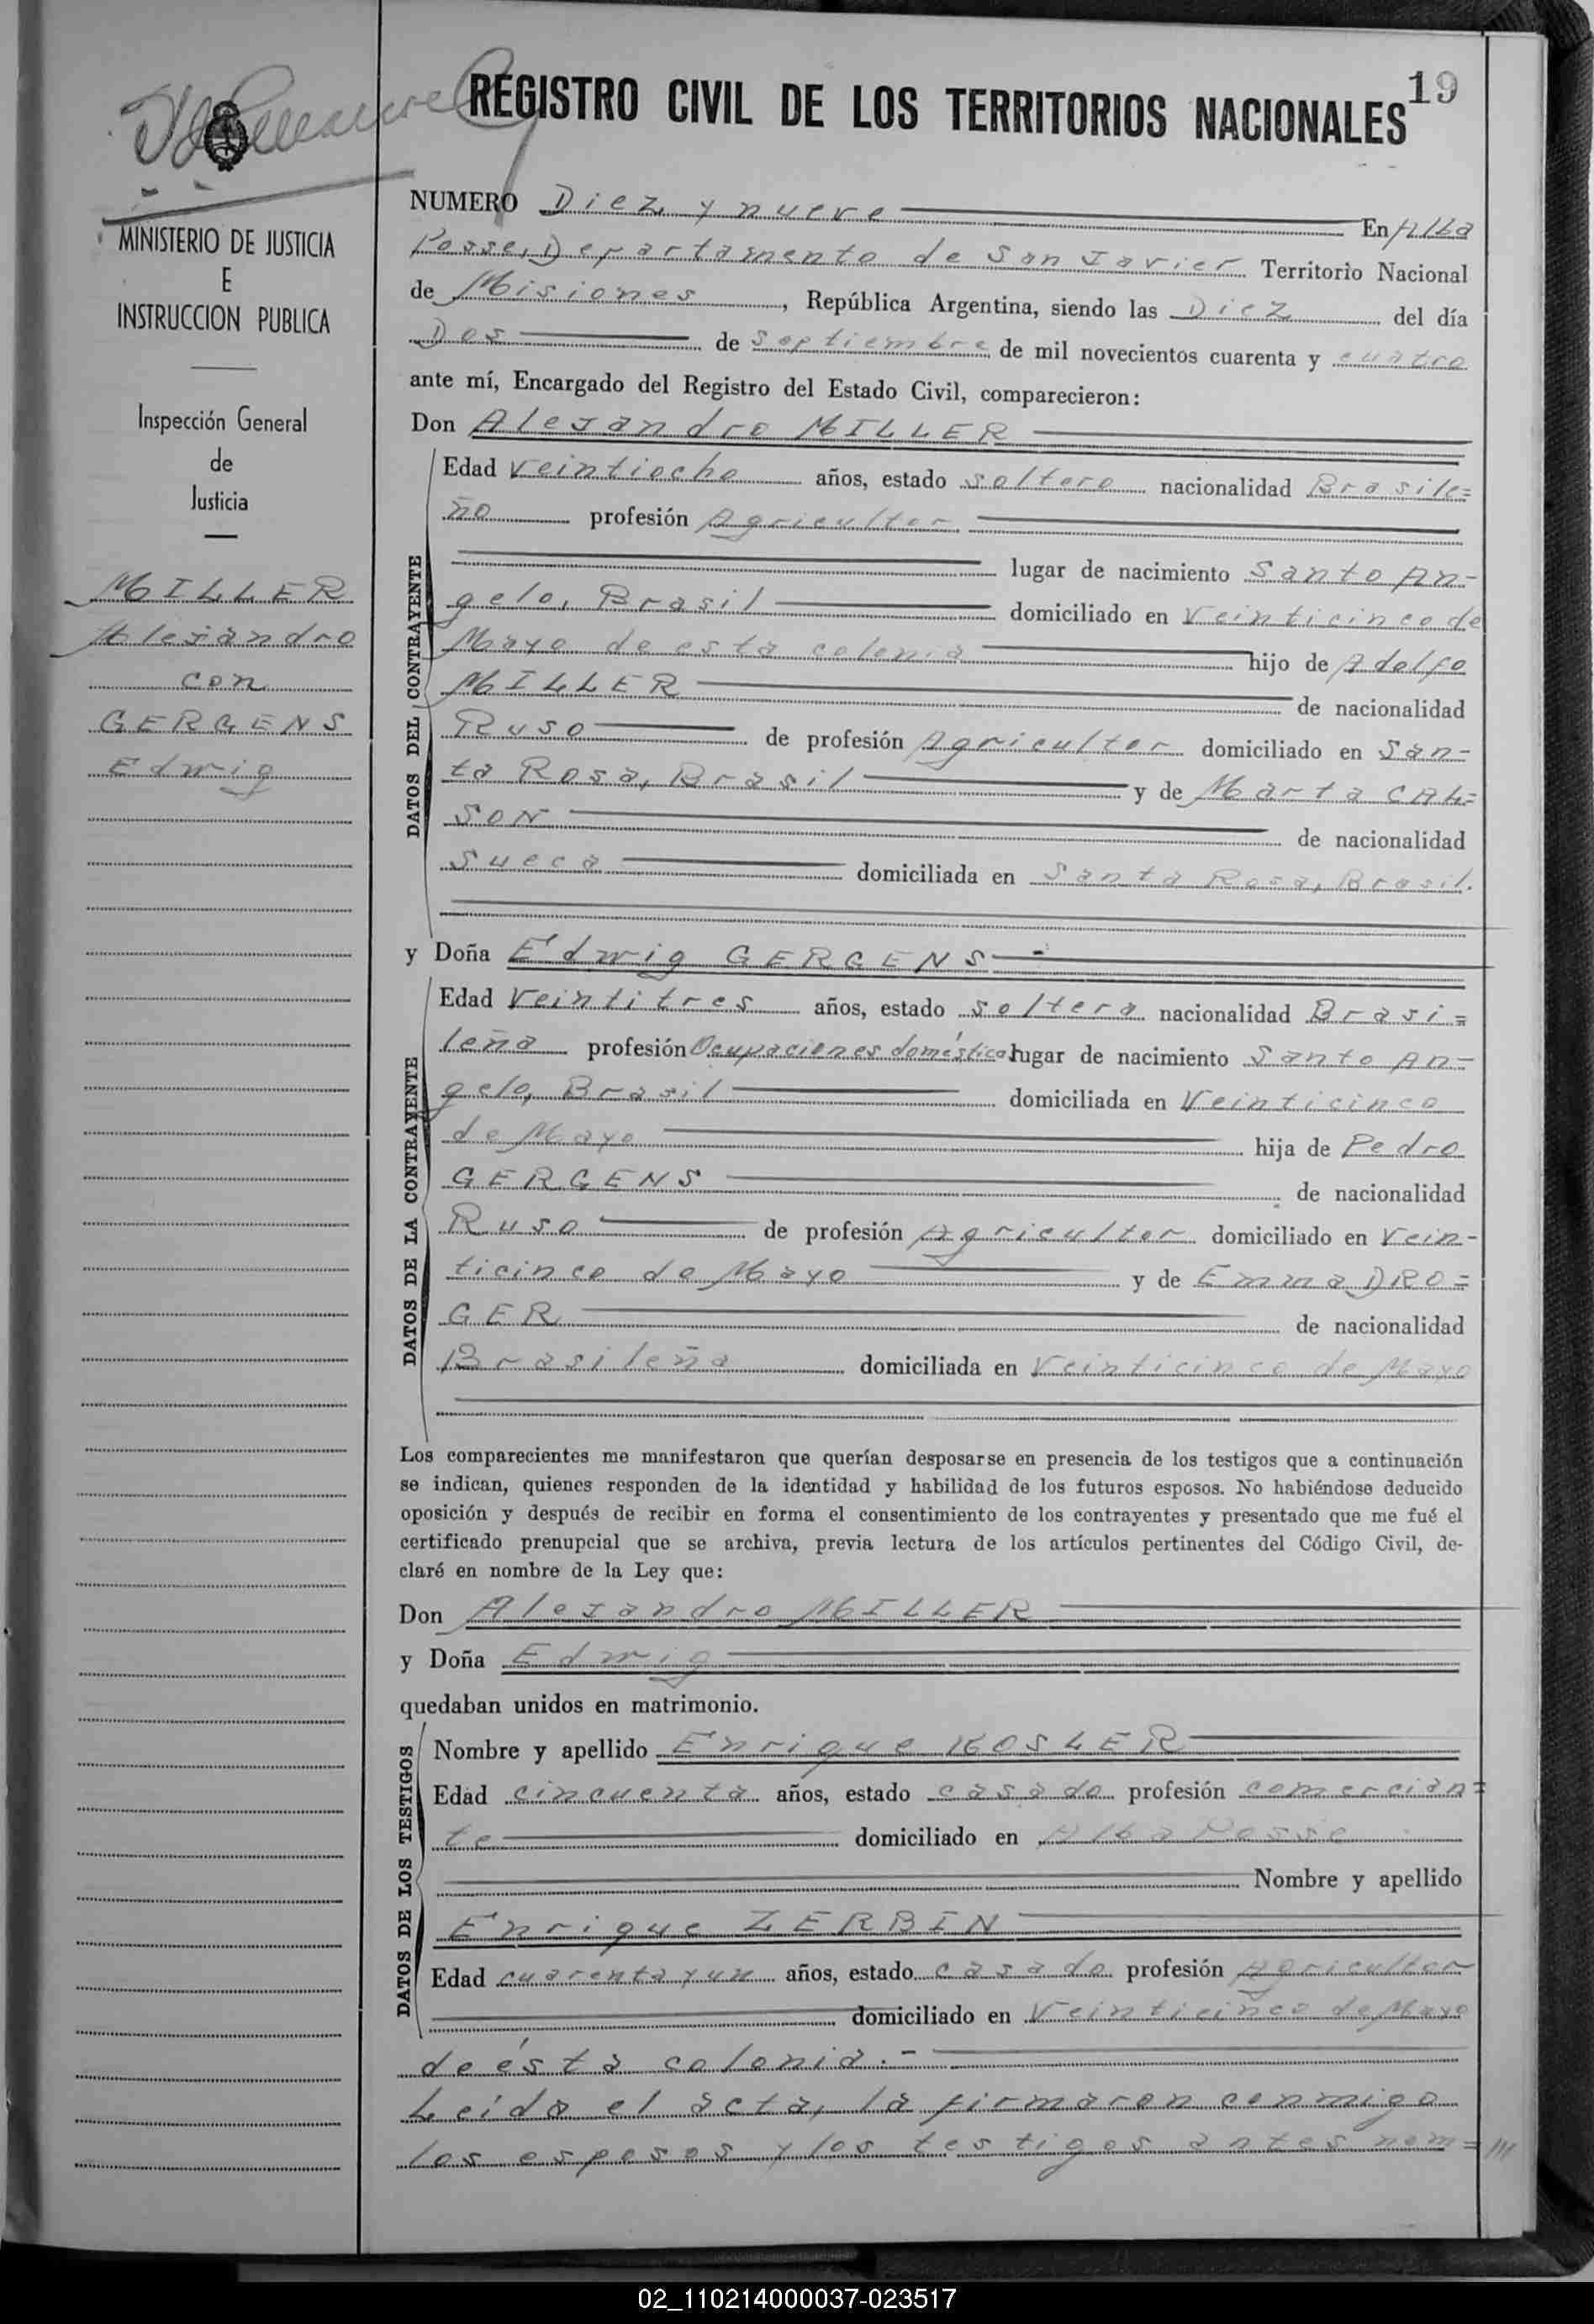 REGISTRO CIVIL DE LOS TERRITORIOS NACIONALES
19
MINISTERIO DE JUSTICIA
E
INSTRUCCION PUBLICA
Inspección General
de
Justicia
MILLER
Alejandro
con
GERGENS
Edwig
NUMERO Diez y nueve En Alba
Posse, Departamento de San Javier Territorio Nacional
de Misiones, República Argentina, siendo las Diez del día
Dos de Septiembre de mil novecientos cuarenta y cuatro
ante mí, Encargado del Registro del Estado Civil, comparecieron:
Don Alejandro MILLER
DATOS DEL CONTRAYENTE
Edad veintiocho años, estado soltero nacionalidad Brasile=
ño profesión Agricultor
lugar de nacimiento Santo An-
gelo, Brasil domiciliado en Veinticinco de
Mayo de esta colonia hijo de Adolfo
MILLER de nacionalidad
Ruso de profesión Agricultor domiciliado en San-
ta Rosa, Brasil y de Marta CAL=
SON de nacionalidad
Sueca domiciliada en Santa Rosa, Brasil.
y Doña Edwig GERGENS-
DATOS DE LA CONTRAYENTE
Edad Veintitres años, estado soltera nacionalidad Brasi=
leña profesión Ocupaciones domésticas lugar de nacimiento Santo An-
gelo, Brasil domiciliada en Veinticinco
de Mayo hija de Pedro
GERGENS de nacionalidad
Ruso de profesión Agricultor domiciliado en Vein-
ticinco de Mayo y de Emma DRO=
GER de nacionalidad
Brasileña domiciliada en Veinticinco de Mayo
Los comparecientes me manifestaron que querían desposarse en presencia de los testigos que a continuación
se indican, quienes responden de la identidad y habilidad de los futuros esposos. No habiéndose deducido
oposición y después de recibir en forma el consentimiento de los contrayentes y presentado que me fué el
certificado prenupcial que se archiva, previa lectura de los artículos pertinentes del Código Civil, de-
claré en nombre de la Ley que:
Don Alejandro MILLER
y Doña Edwig
quedaban unidos en matrimonio.
DATOS DE LOS TESTIGOS
Nombre y apellido Enrique KOSLER
Edad cincuenta años, estado casado profesión comercian=
te domiciliado en Alba Posse
Nombre y apellido
Enrique ZERBIN
Edad cuarenta y un años, estado casado profesión Agricultor
domiciliado en Veinticinco de Mayo
de ésta colonia.-
Leída el acta, la firmaron conmigo
los esposos y los testigos antes nom=///
02_110214000037-023517